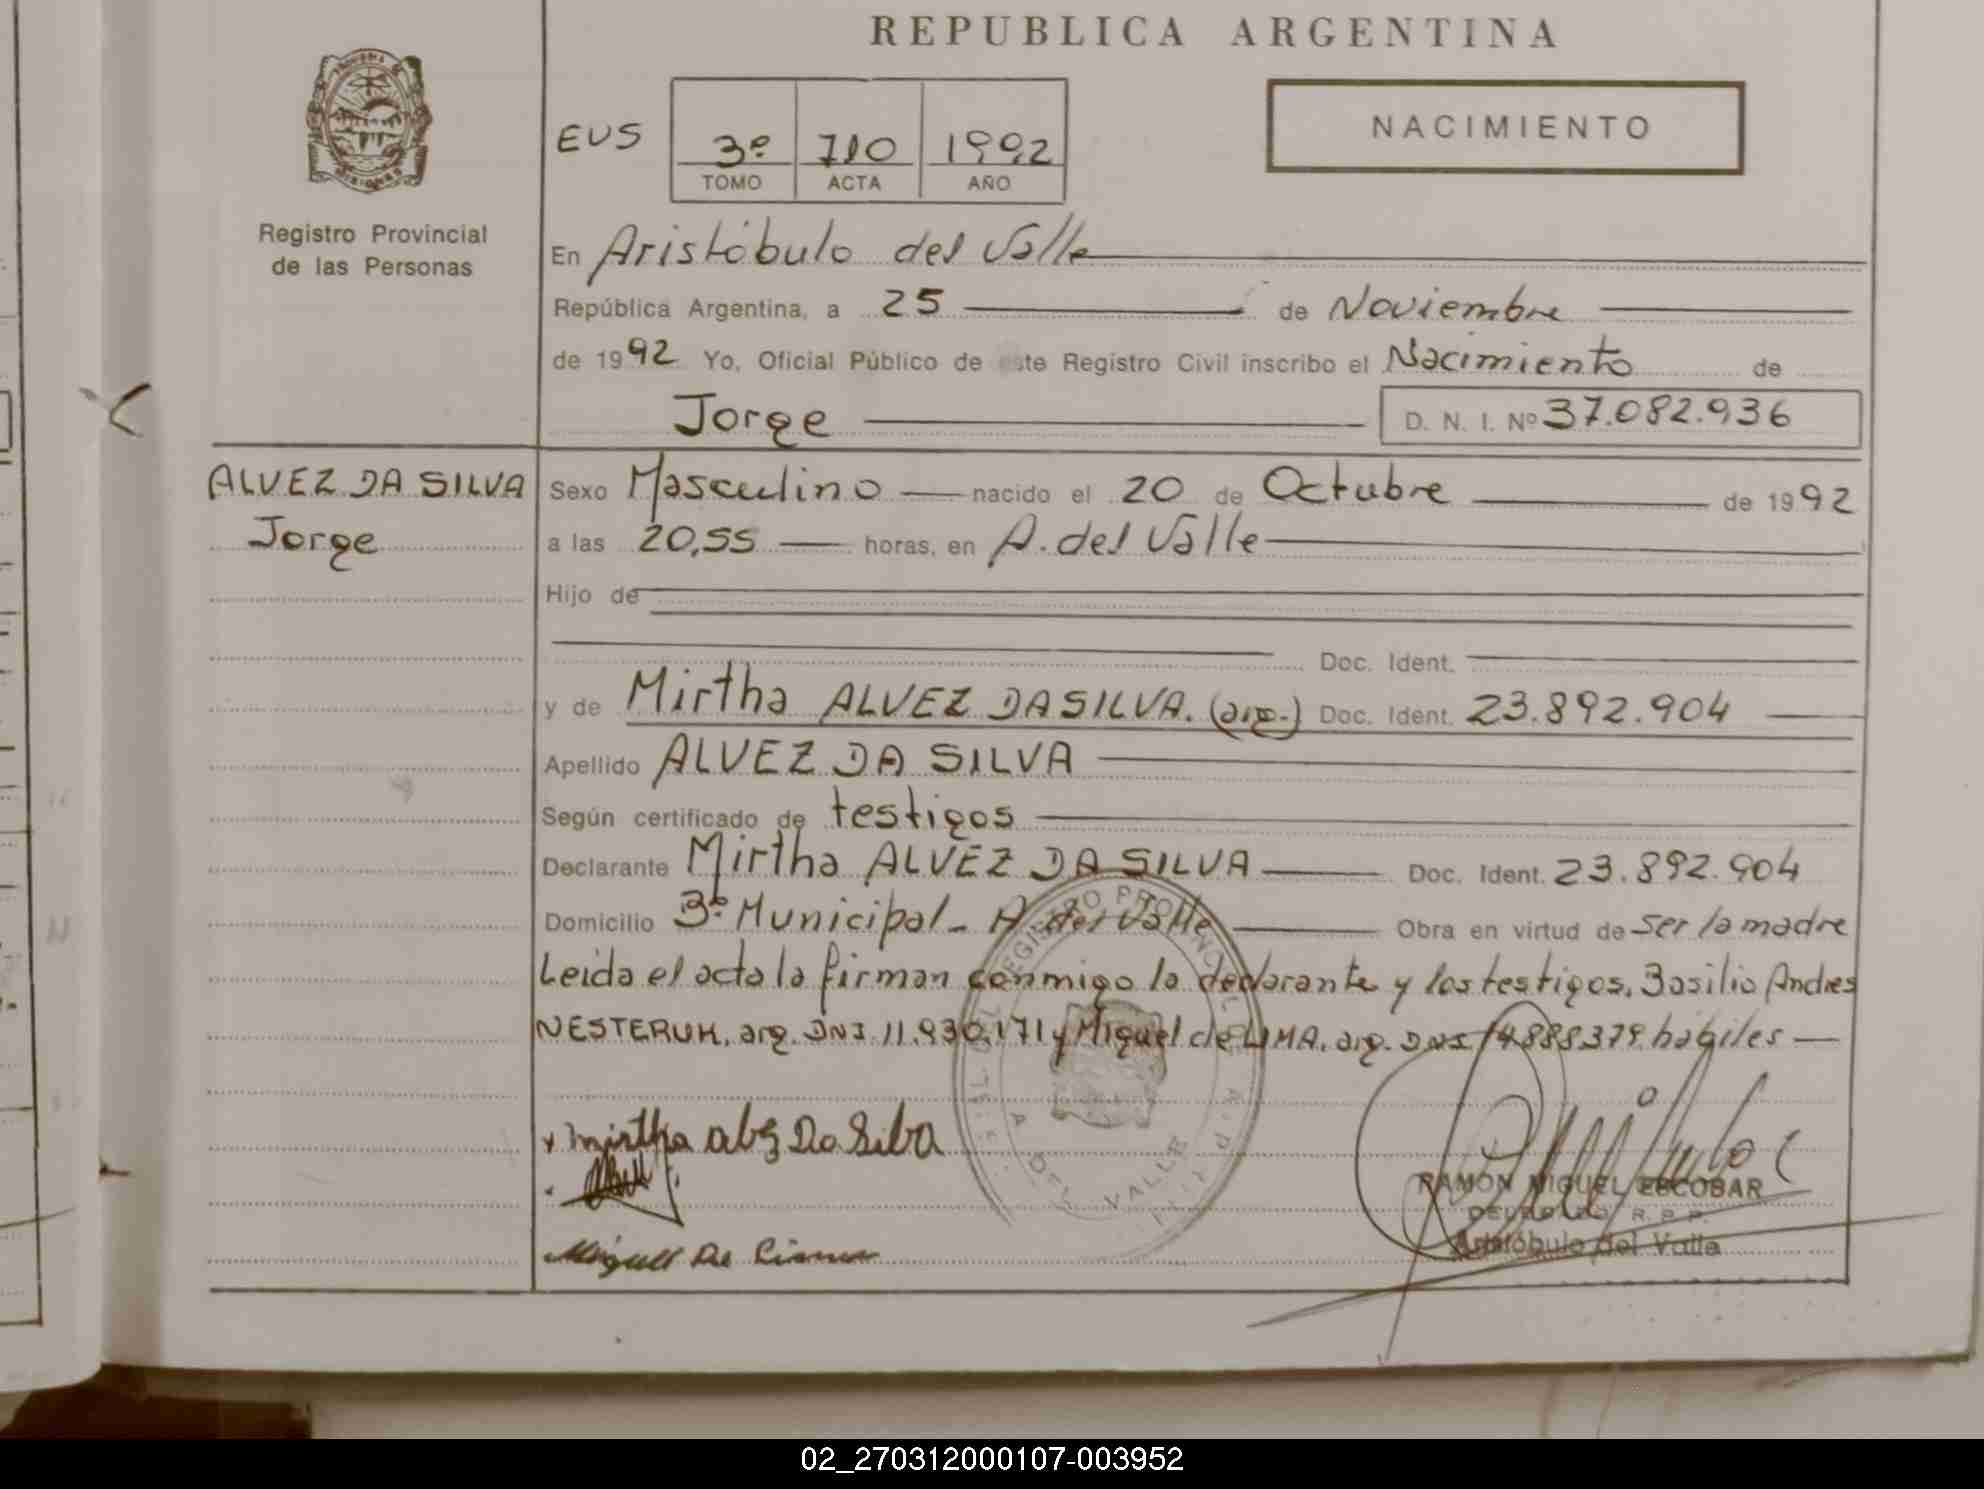 REPUBLICA ARGENTINA
NACIMIENTO
EUS 3º 710 1992
TOMO ACTA AÑO
Registro Provincial
de las Personas
En Aristóbulo del Valle
República Argentina, a 25 de Noviembre
de 1992 Yo, Oficial Público de este Registro Civil inscribo el Nacimiento de
Jorge D. N. I. Nº 37.082.936
ALVEZ DA SILVA
Jorge
Sexo Masculino nacido el 20 de Octubre de 1992
a las 20,55 horas, en A. del Valle
Hijo de
Doc. Ident.
y de Mirtha ALVEZ DA SILVA. (arg.) Doc. Ident. 23.892.904
Apellido ALVEZ DA SILVA
Según certificado de testigos
Declarante Mirtha ALVEZ DA SILVA Doc. Ident. 23.892.904
Domicilio Bº Municipal - A. del Valle Obra en virtud de ser la madre
Leida el acta la firman conmigo la declarante y los testigos, Basilio Andres
NESTERUK, arg. DNI. 11.930.171 y Miguel de LIMA, arg. DNI 14888379 hábiles
mirtha alvez Da Silva
Miguel De Lima
REGISTRO PROVINCIAL
A. DEL VALLE
RAMON MIGUEL ESCOBAR
DELEGADO R. P. P.
Aristóbulo del Valle
02_270312000107-003952